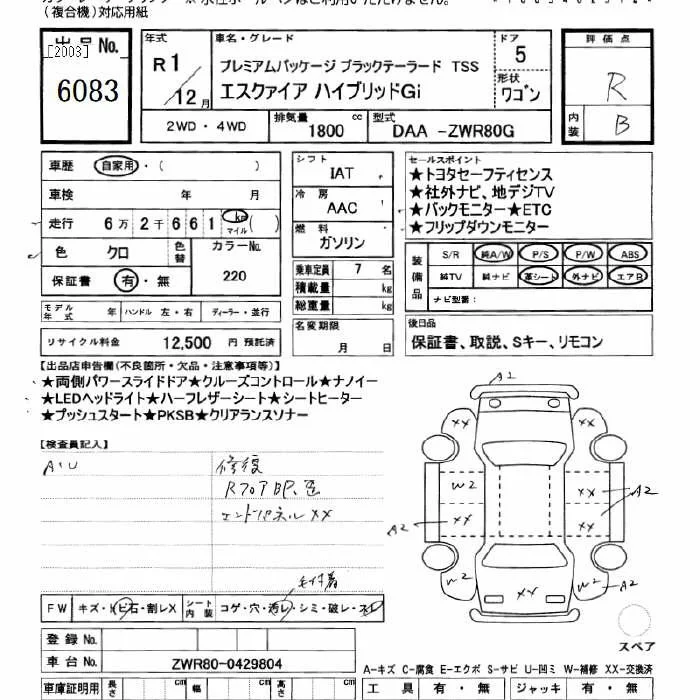 (複合機)対応用紙
出品No.
[2003]
6083
年式
R1/12月
車名・グレード
プレミアムパッケージ ブラックテーラード TSS
エスクァイア ハイブリッドGi
ドア
5
形状
ワゴン
評価点
R
内装
B
2WD・4WD
排気量
1800 cc
型式
DAA -ZWR80G
車歴
自家用・( )
車検 年 月
走行 6万2千661 km マイル( )
色 クロ
色替
カラーNo.
220
保証書 有・無
モデル年式 年
ハンドル 左・右
ディーラー・並行
リサイクル料金 12,500 円 預託済
シフト
IAT
冷房
AAC
燃料
ガソリン
乗車定員 7 名
積載量 kg
総重量 kg
名変期限
月 日
セールスポイント
★トヨタセーフティセンス
★社外ナビ、地デジTV
★バックモニター★ETC
★フリップダウンモニター
装備品
S/R 純A/W P/S P/W ABS
純TV 純ナビ 革シート 外ナビ エアB
ナビ型番:
後日品
保証書、取説、Sキー、リモコン
【出品店申告欄(不良箇所・欠品・注意事項等)】
★両側パワースライドドア★クルーズコントロール★ナノイー
★LEDヘッドライト★ハーフレザーシート★シートヒーター
★プッシュスタート★PKSB★クリアランスソナー
【検査員記入】
A・U
修復
Rフロア
エンドパネルXX
A2
XX
XX
W2
XX
XX
XX
A2
A2
W2
XX
W2
A2
スペア
FW
キズ・トビ石・割レX
シート内装
コゲ・穴・汚レ・シミ・破レ・スレ
登録No.
車台No.
ZWR80-0429804
A-キズ C-腐食 E-エクボ S-サビ U-凹ミ W-補修 XX-交換済
車庫証明用
長さ cm
幅 cm
高さ cm
工具 有・無
ジャッキ 有・無